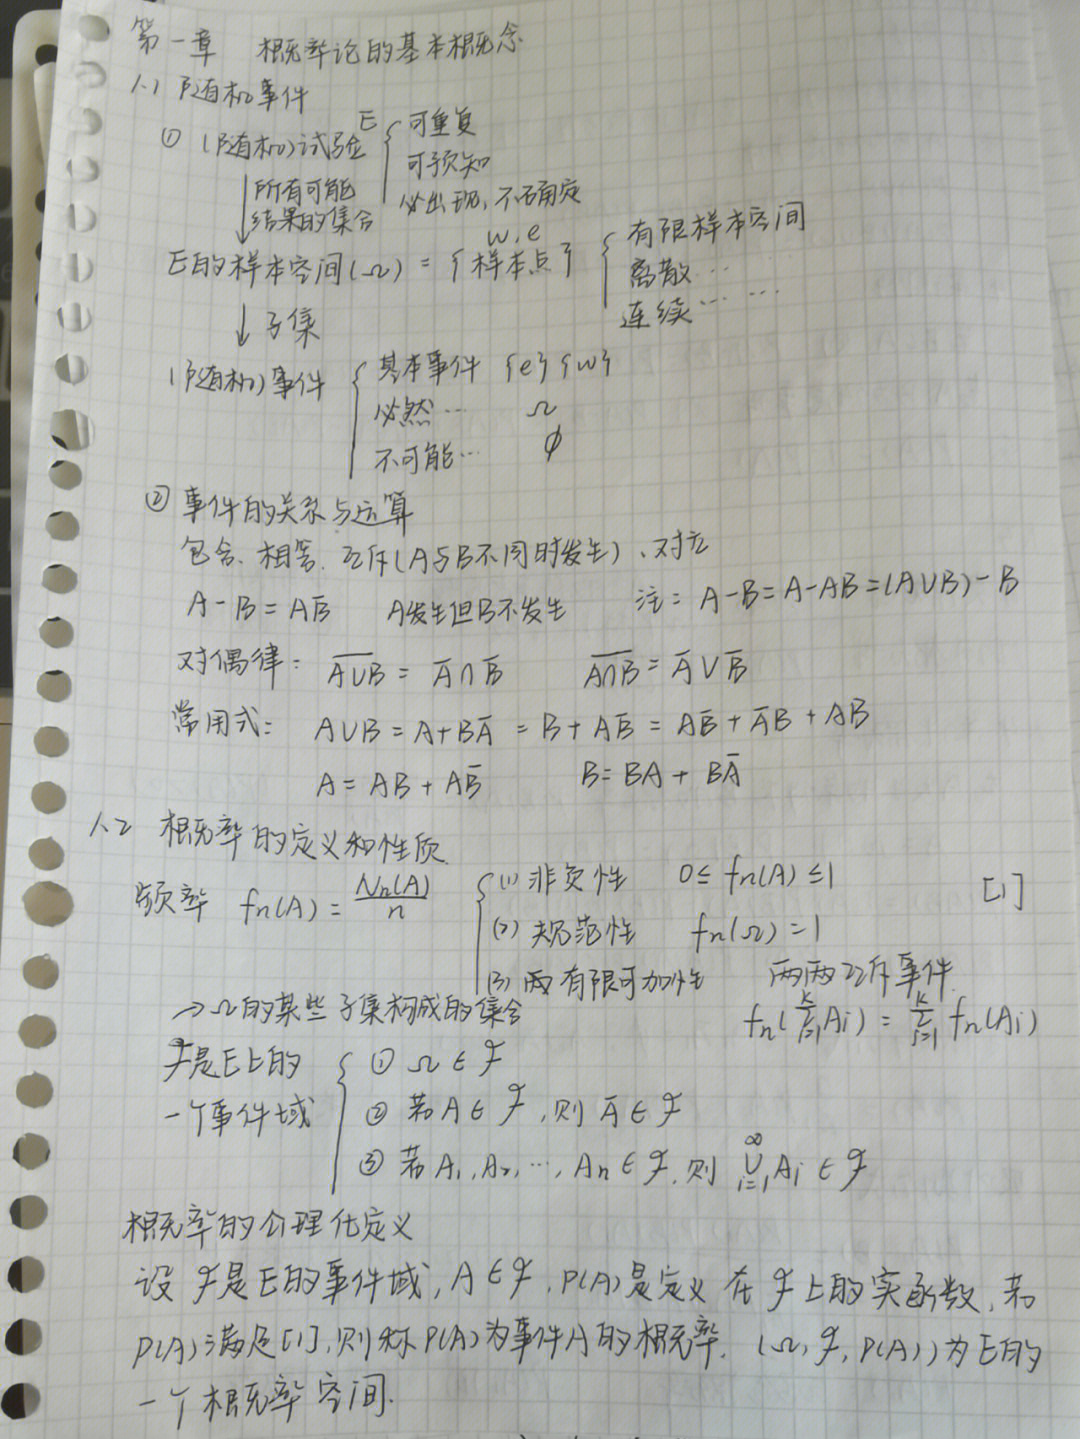 第一章 概率论的基本概念
1.1 随机事件
① (随机)试验 E { 可重复
可预知
必出现,不确定
↓ 所有可能
结果的集合
w, e
E的样本空间(Ω) = {样本点} { 有限样本空间
离散……
连续…… …
↓ 子集
(随机)事件 { 基本事件 {e} {w}
必然… Ω
不可能… ϕ
② 事件的关系与运算
包含、相等、互斥(A与B不同时发生)、对立
A-B=AB̅ A发生但B不发生 注: A-B=A-AB=(A∪B)-B
对偶律: \overline{A∪B} = A̅∩B̅ \overline{A∩B} = A̅∪B̅
常用式: A∪B = A+BA̅ = B+AB̅ = AB̅+A̅B+AB
A=AB+AB̅ B=BA+BA̅
1.2 概率的定义和性质
频率 fn(A) = Nn(A)/n { (1) 非负性 0≤fn(A)≤1 [1]
(2) 规范性 fn(Ω)=1
(3) 有限可加性 两两互斥事件
fn(∑_{i=1}^{k} Ai) = ∑_{i=1}^{k} fn(Ai)
→Ω的某些子集构成的集合
ℱ是E上的 { ① Ω∈ℱ
一个事件域 ② 若A∈ℱ,则A̅∈ℱ
③ 若A₁,A₂,…,An∈ℱ,则 ⋃_{i=1}^{∞} Ai∈ℱ
概率的公理化定义
设ℱ是E的事件域,A∈ℱ,P(A)是定义在ℱ上的实函数,若
P(A)满足[1],则称P(A)为事件A的概率. (Ω,ℱ,P(A))为E的
一个概率空间.